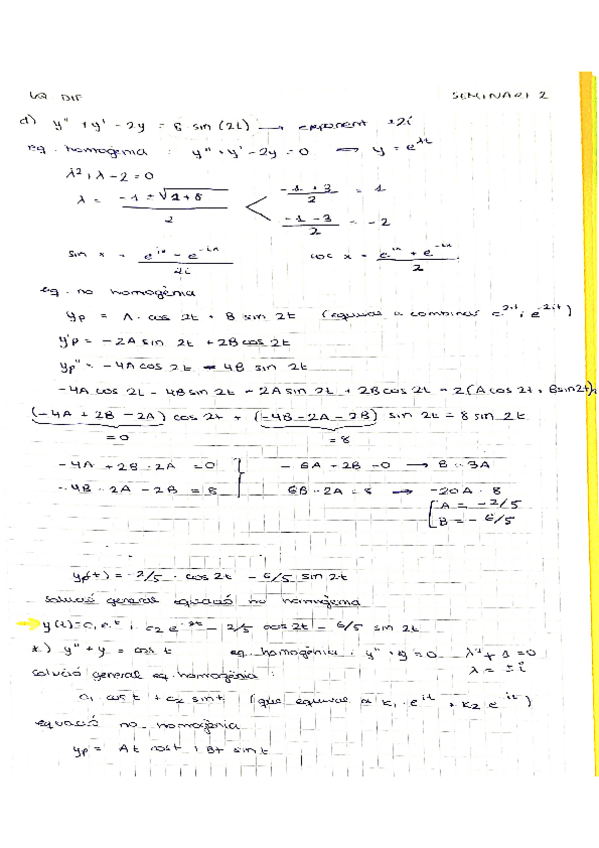 SEMINARI 2
d) y'' + y' - 2y = 8 sin (2t) → exponent ±2i
eq. homogènia : y'' + y' - 2y = 0 → y = e^λt
λ² + λ - 2 = 0
λ = (-1 ± √(1+8)) / 2 < (-1 + 3)/2 = 1
(-1 - 3)/2 = -2
sin x = (e^ix - e^-ix) / 2i cos x = (e^ix + e^-ix) / 2
eq. no homogènia
yp = A · cos 2t + B sin 2t (equival a combinar e^2it i e^-2it)
y'p = -2A sin 2t + 2B cos 2t
yp'' = -4A cos 2t - 4B sin 2t
-4A cos 2t - 4B sin 2t - 2A sin 2t + 2B cos 2t - 2(A cos 2t + B sin 2t)
(-4A + 2B - 2A) cos 2t + (-4B - 2A - 2B) sin 2t = 8 sin 2t
= 0 = 8
-4A + 2B - 2A = 0 - 6A + 2B = 0 → B = 3A
-4B - 2A - 2B = 8 -6B - 2A = 8 → -20A = 8
A = -2/5
B = - 6/5
yp(t) = -2/5 · cos 2t - 6/5 sin 2t
solució general equació no homogènia
→ y(t) = c₁ e^t + c₂ e^-2t - 2/5 cos 2t - 6/5 sin 2t
*) y'' + y = cos t eq. homogènia : y'' + y = 0 λ² + 1 = 0
λ = ± i
solució general eq. homogènia :
c₁ cos t + c₂ sin t (que equival a k₁ · e^it + k₂ e^-it)
equació no homogènia
yp = At cos t + Bt sin t